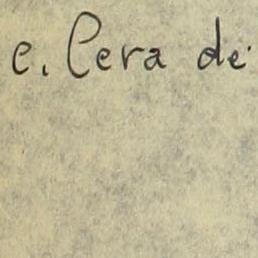 e. Cera de